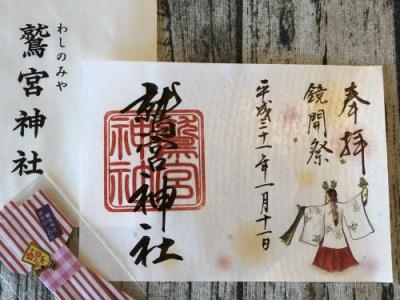 わしのみや
鷲宮神社
奉拝
鏡開祭
平成三十一年一月十一日
鷲宮神社
鷲宮
神社